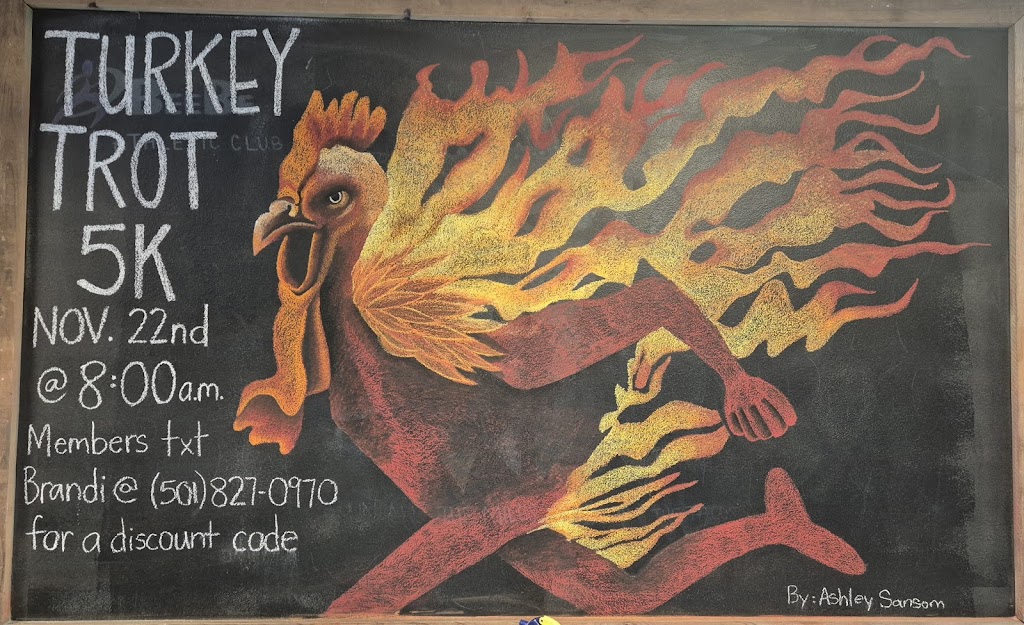 TURKEY
TROT
5K
NOV. 22nd
@ 8:00a.m.
Members txt
Brandi@ (501)827-0970
for a discount code
BEEBE
ATHLETIC CLUB
By: Ashley Sansom